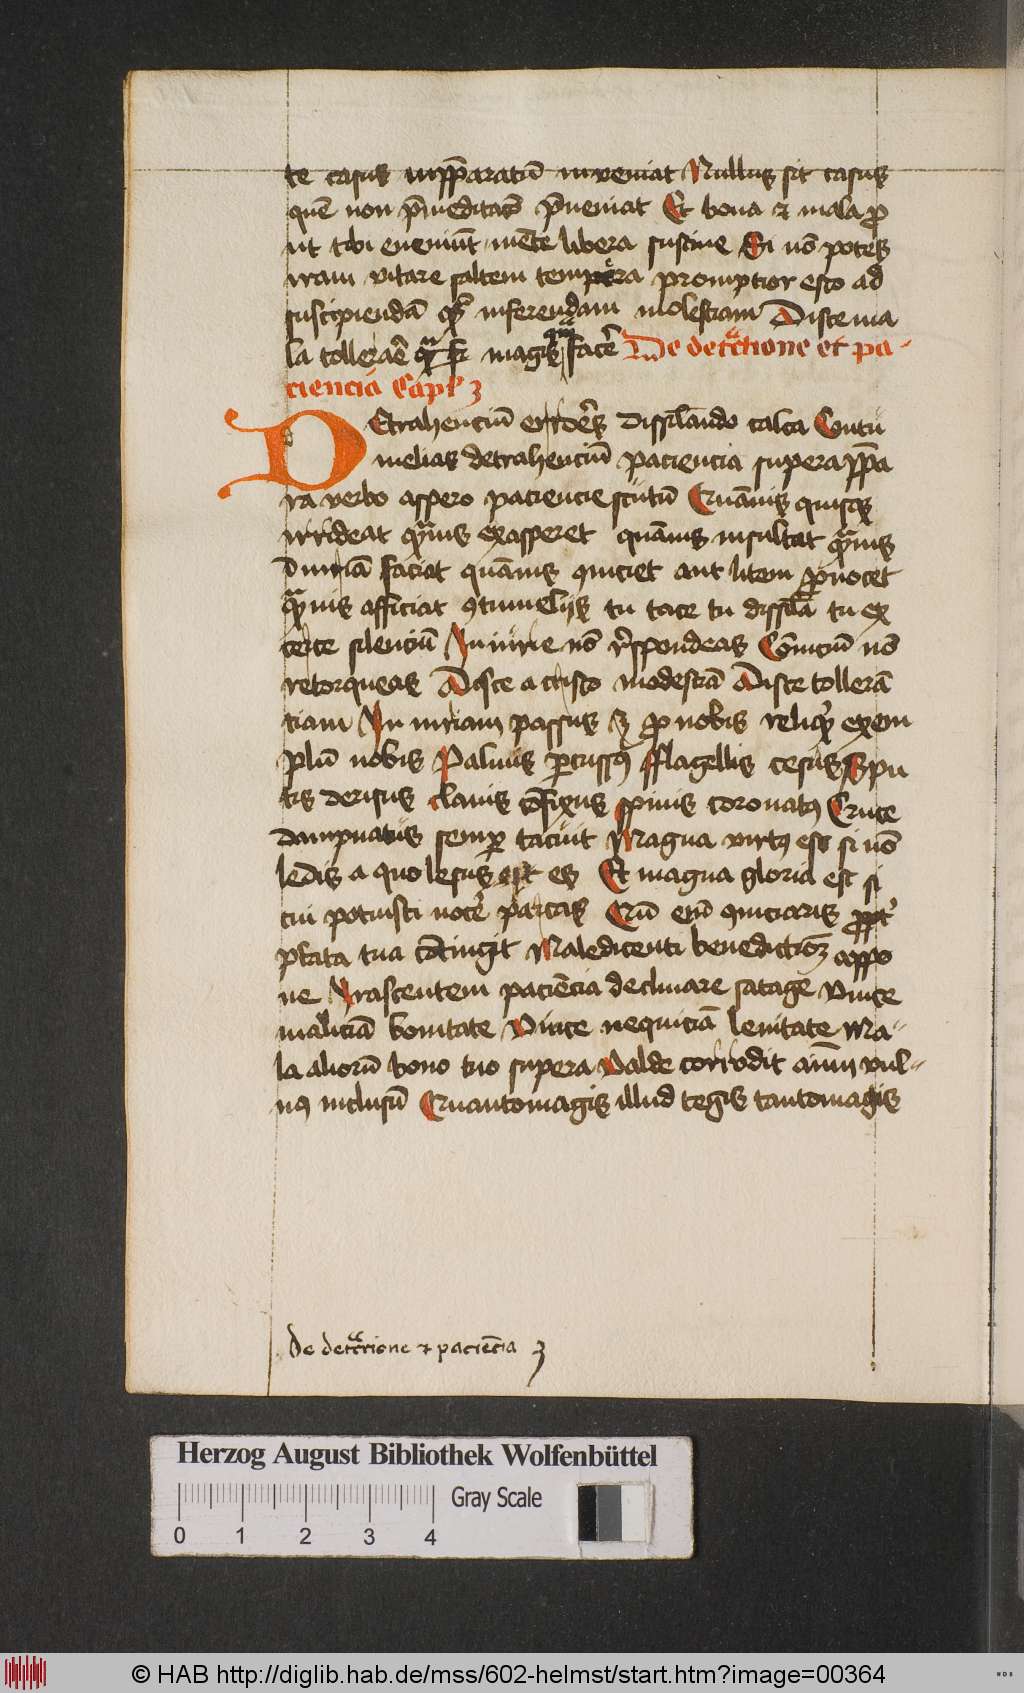 te casus imp̄paratū inveniat Nullus sit casus
quē non p̄meditatꝰ p̄ueniat Et bona et mala ꝓ
ut tibi eueniūt mēte libera sustine Si nō potes
iram vitare saltem tempera promptior esto ad
suscipiendā inferendam molestiam Disce ma
la tollerare magis facere De detractione et pa-
ciencia Caplm
Detrahenciū errores dissilando calca Contu
melias detrahenciū paciencia supera p̄pa
ra verbo aspero paciencie scutū Quāuis quisqꝫ
irrideat quāuis exasperet quāuis insultet quāuis
iniuriā faciat quāuis ꝯuiciet aut litem ꝓuocet
quāuis afficiat ꝯtumelijs tu tace tu dissilā tu ex
erce silenciū Iniurie nō respondeas Conuiciū nō
retorqueas Disce a cristo modestiā Disce tollerā
tiam In iniriam passus ꝓ nobis reliqt exem
plū nobis Palmis ꝑcussꝰ fflagellis cesus Spu
tis derisus clauis cōfixus spinis coronatꝰ Cruce
dampnatus semꝑ tacuit Magna virtꝰ est si nō
ledis a quo lesus est es Et magna gloria est si
cui potuisti nocere parcas Cū enī ꝯuiciaris ꝓpt
pctata tua cōtingit Maledicenti benedictionē appo
ne Irascentem paciēcia declinare satage Vince
maliciā bonitate Vince nequiciā lenitate Ma-
la aliorū bono tuo supera Valde corrodit aīm vul-
nꝰ inclusū Quantomagis illud tegis tantomagis
De detractione et paciēcia
Herzog August Bibliothek Wolfenbüttel
Gray Scale
0 1 2 3 4
© HAB http://diglib.hab.de/mss/602-helmst/start.htm?image=00364